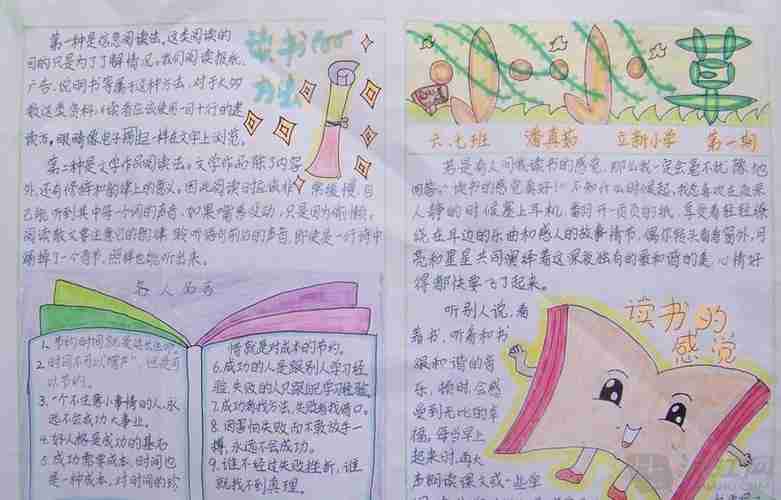 第一种是信息阅读法。这类阅读的
目的只是为了了解情况。我们阅读报纸、
广告、说明书等属于这种方法。对于大多
数这类资料,读者应该使用一目十行的速
读法,眼睛像电子扫描一样在文字上浏览。
读书的
方法
第二种是文学作品阅读法。文学作品除了内容
外,还有修辞和韵律上的意义。因此阅读时应该非常缓慢,自
己能听到其中每一个词的声音,如果嘴唇没动,只是因为偷懒。
阅读散文要注意它的韵律,聆听语句前后的声音,即使是一行诗中
漏掉了一个音节,照样也能听出来。
名人名言
1.节约时间
2.时间不可以
计节约。
3.一个不注意小事情的人,永
远不会成功大事业。
4.好人格是成功的基石
5.成功需要成本,时间也
是一种成本,对时间的珍
惜就是对成本的节约。
6.成功的人是跟别人学习经
验,失败的人只跟自己学习经验
7.成功者找方法,失败者找借口。
8.因害怕失败而不敢放手一
搏,永远不会成功。
9.谁不经过失败挫折,谁
就找不到真理。
六、七班 潘真茹 立新小学 第一期
若是有人问我读书的感觉,那么我一定会毫不犹豫地
回答:“读书的感觉真好!”不知什么时候起,我总喜欢在夜深
人静的时候塞上耳机,翻开一页页的纸,享受着轻轻缭
绕在耳边的乐曲和感人的故事情节,偶尔抬头看看窗外,月
亮和星星共同演绎着这深夜独有的柔和谐的美,心情好
得都快要飞了起来。
读书的
感觉
听别人说,看
着书,听着和书
很和谐的音
乐,顿时会感
受到无比的幸
福。每当早上
起来时,再大
声朗读课文或一些学